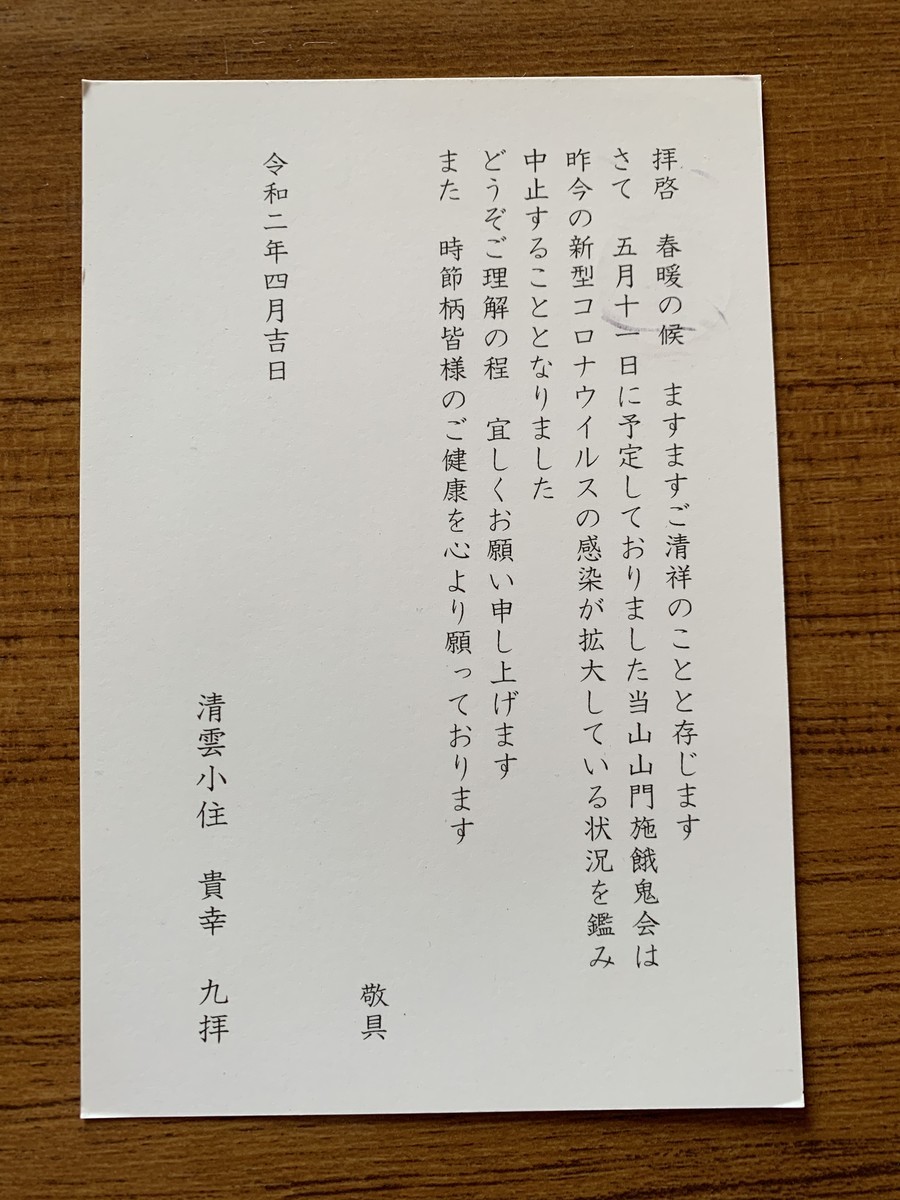 拝啓　春暖の候　ますますご清祥のことと存じます
さて　五月十一日に予定しておりました当山山門施餓鬼会は
昨今の新型コロナウイルスの感染が拡大している状況を鑑み
中止することとなりました
どうぞご理解の程　宜しくお願い申し上げます
また　時節柄皆様のご健康を心より願っております
敬具
令和二年四月吉日
清雲小住　貴幸　九拝